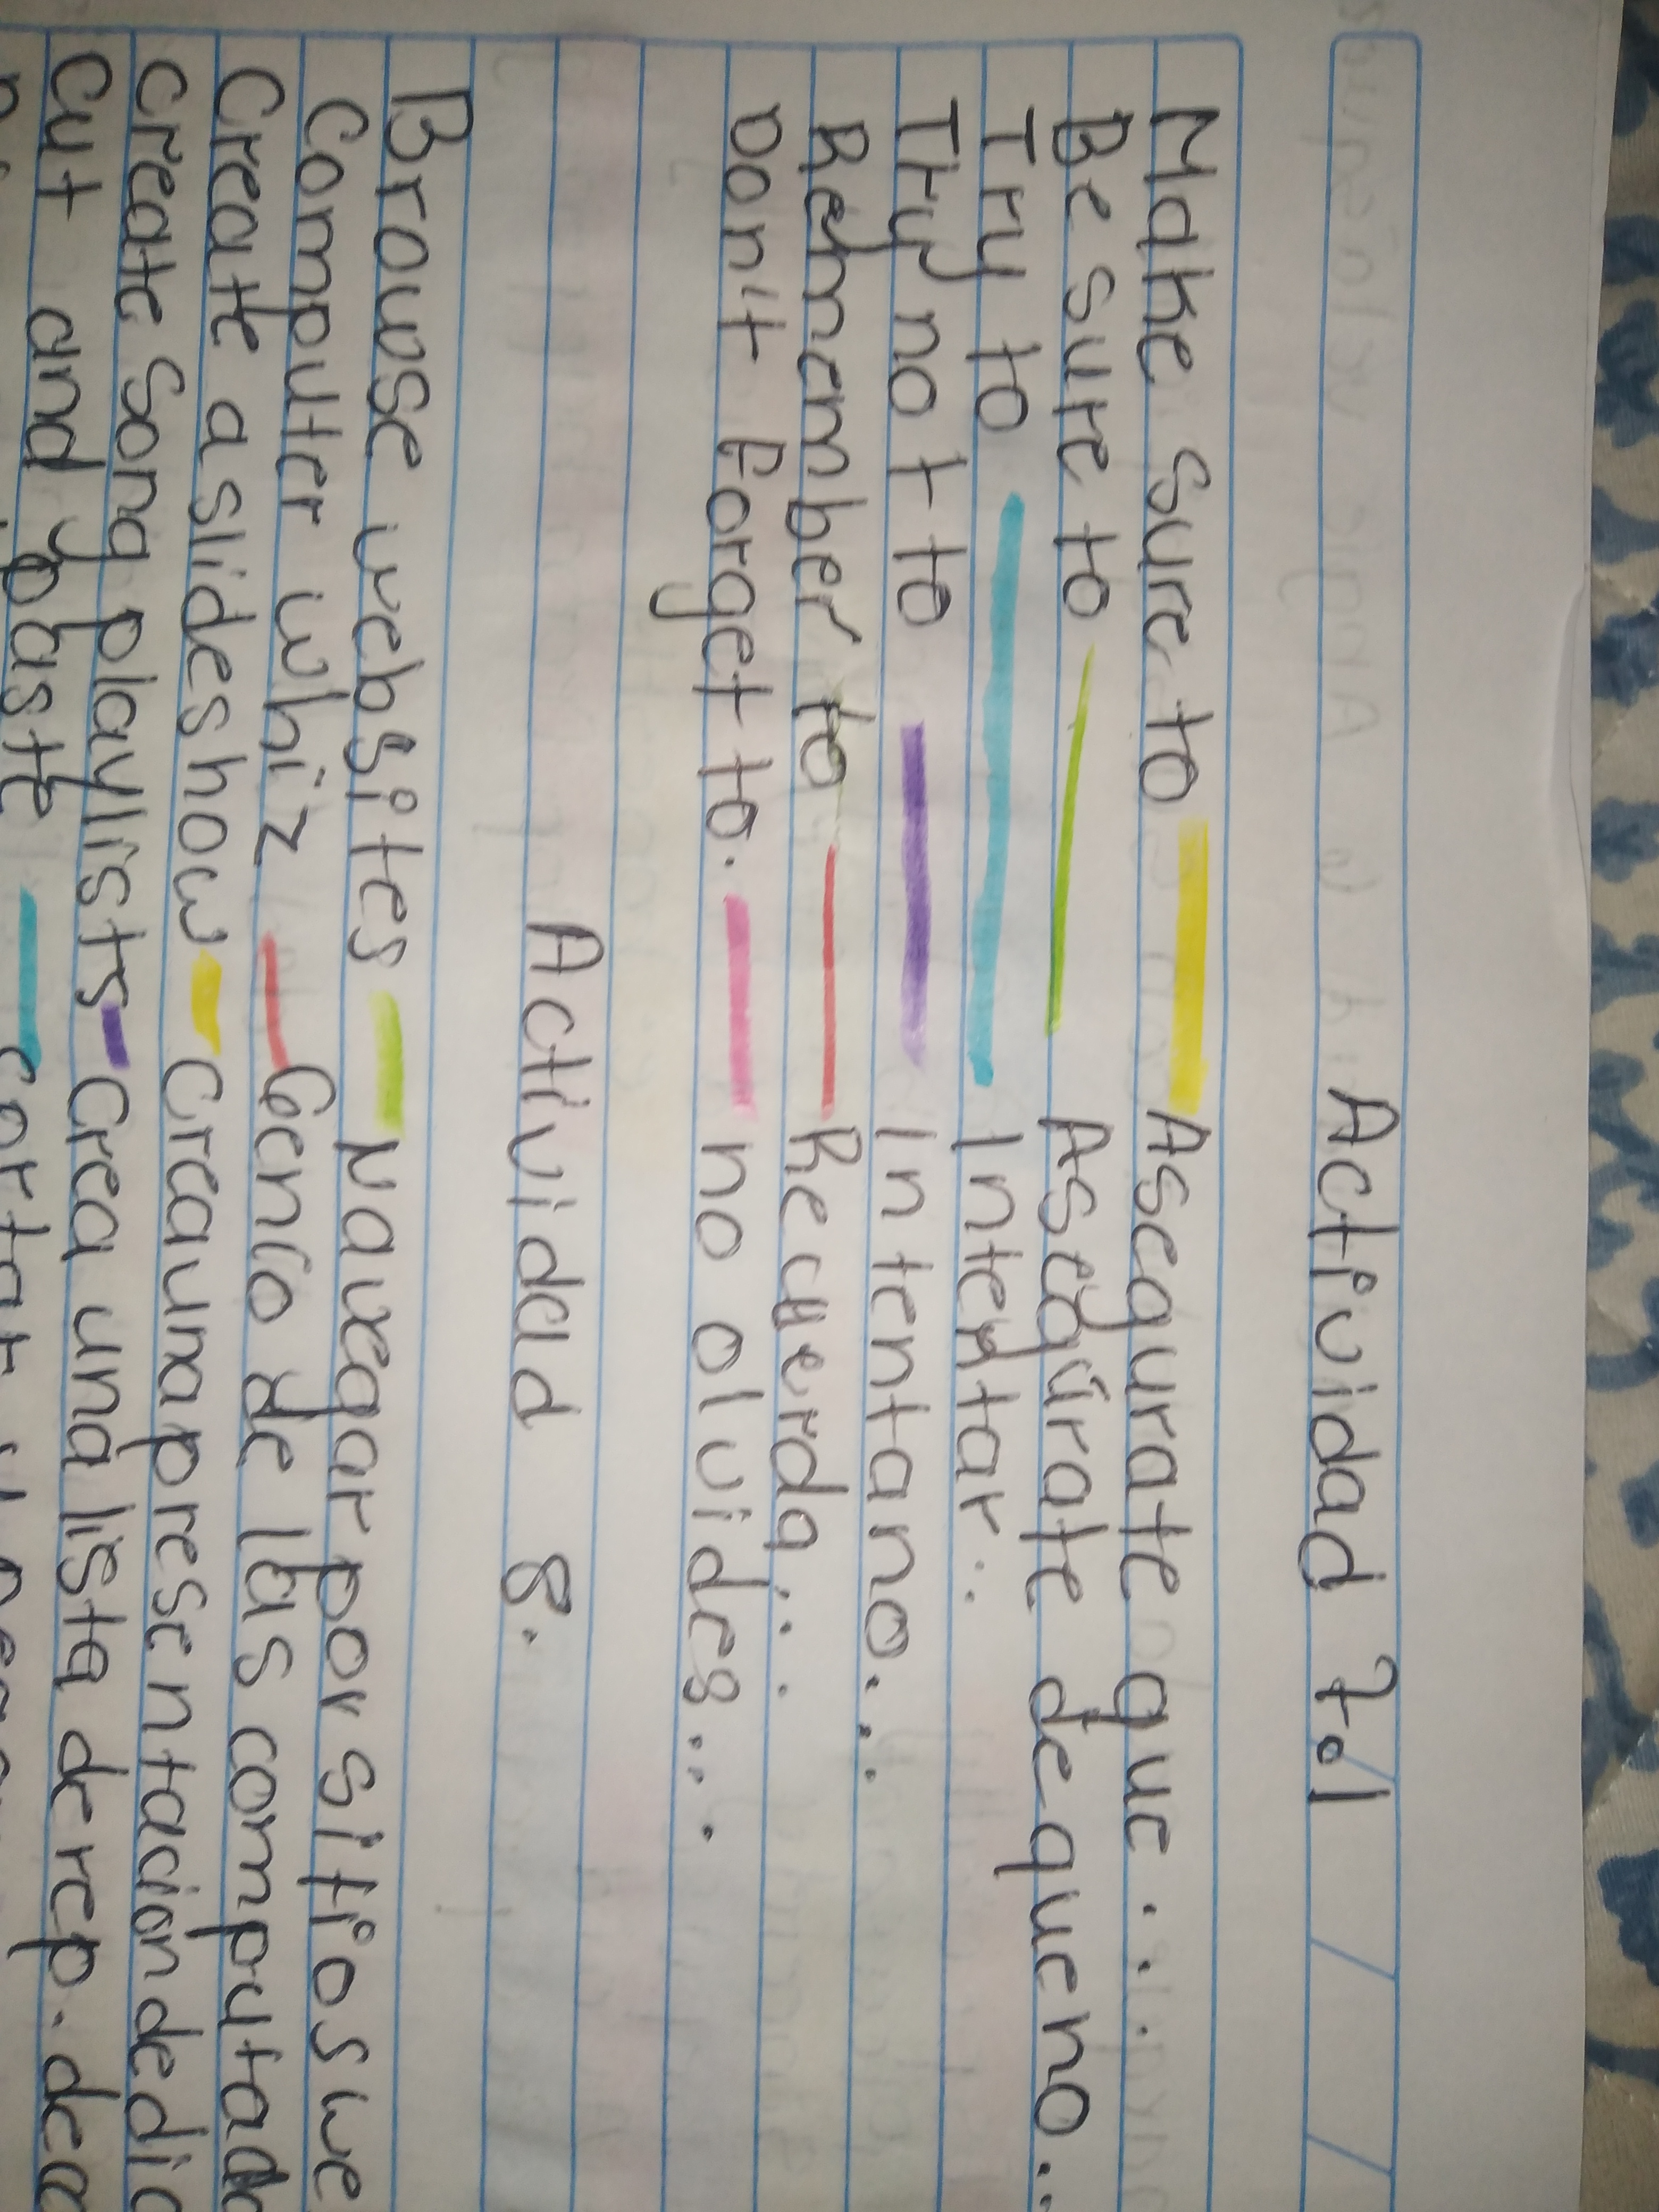 Actividad 7.1
Make sure to Asegurate que...
Be sure to Asegúrate de que no...
Try to Intentar...
Try not to Intentar no...
Remember to Recuerda...
Don't Forget to. no olvides...
Actividad 8.
Browse websites Navegar por sitios we
Computer whiz Genio de las computad
Create a slideshow Crea una presentacion de di
Create song playlists Crea una lista de rep. de ca
Cut and paste cortar y